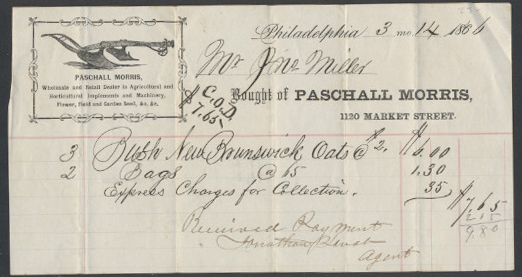 Philadelphia 3 mo. 14 1866
PASCHALL MORRIS,
Wholesale and Retail Dealer in Agricultural and
Horticultural Implements and Machinery,
Flower, Field and Garden Seed, &c. &c.
Mr Jno Miller
$ C.O.D. 7.65
Bought of PASCHALL MORRIS,
1120 MARKET STREET.
3 Bush New Brunswick Oats @ $2. $6.00
2 Bags @ 65 1.30
Express Charges for Collection. 35
$7.65
2.15
9.80
Received Payment
Jonathan
Agent